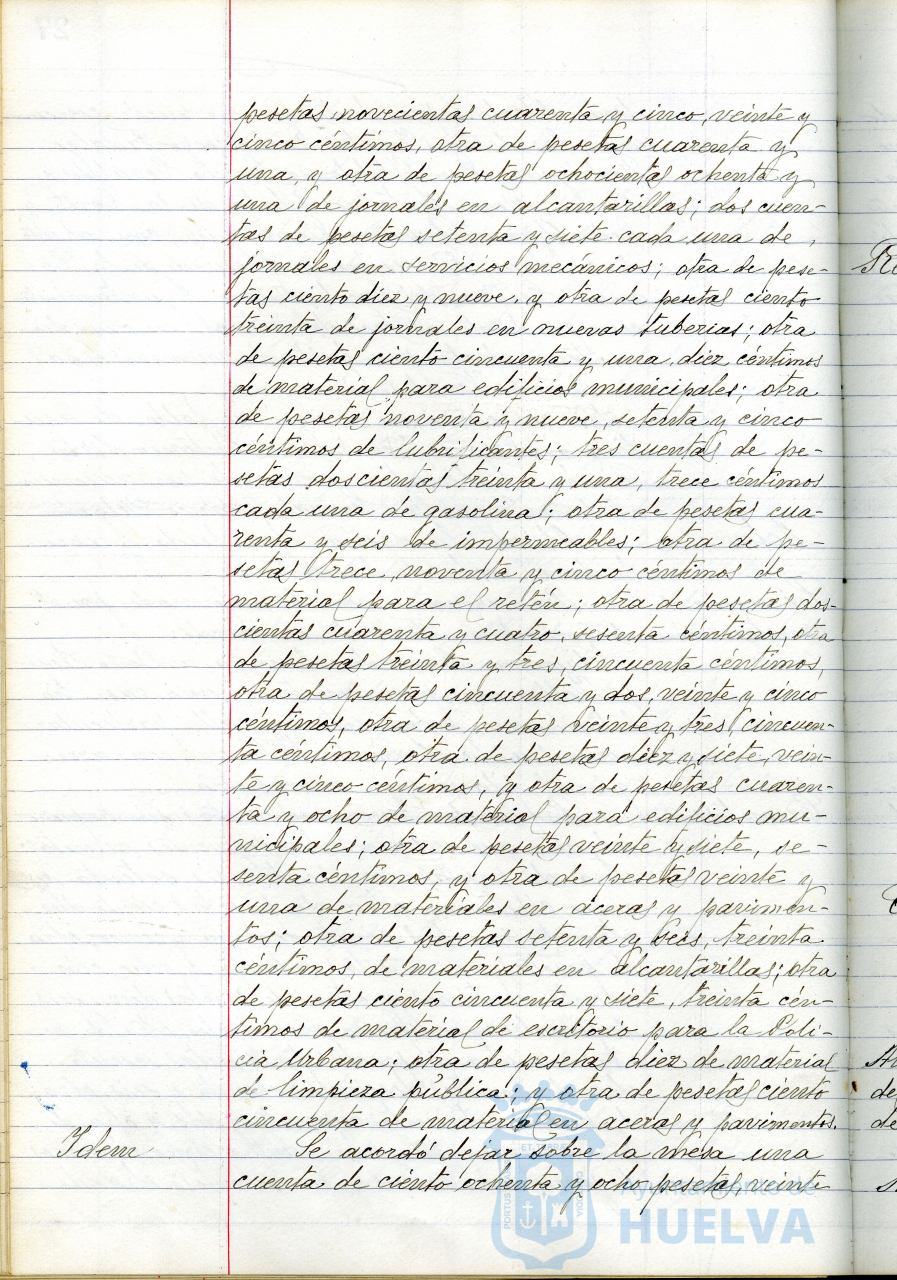 pesetas novecientas cuarenta y cinco, veinte y
cinco céntimos, otra de pesetas cuarenta y
una, y otra de pesetas ochocientas ochenta y
una de jornales en alcantarillas; dos cuen-
tas de pesetas setenta y siete cada una de,
jornales en servicios mecánicos; otra de pese-
tas ciento diez y nueve, y otra de pesetas ciento
treinta de jornales en nuevas tuberias; otra
de pesetas ciento cincuenta y una, diez céntimos
de material para edificios municipales; otra
de pesetas noventa y nueve, setenta y cinco
céntimos de lubrificantes; tres cuentas de pe-
setas doscientas treinta y una, trece céntimos
cada una de gasolina; otra de pesetas cua-
renta y seis de impermeables; otra de pe-
setas trece, noventa y cinco céntimos de
material para el retén; otra de pesetas dos-
cientas cuarenta y cuatro, sesenta céntimos, otra
de pesetas treinta y tres, cincuenta céntimos,
otra de pesetas cincuenta y dos, veinte y cinco
céntimos, otra de pesetas veinte y tres, cincuen-
ta céntimos, otra de pesetas diez y siete, vein-
te y cinco céntimos, y otra de pesetas cuaren-
ta y ocho de material para edificios mu-
nicipales; otra de pesetas veinte y siete, se-
senta céntimos, y otra de pesetas veinte y
una de materiales en aceras y pavimen-
tos; otra de pesetas setenta y seis, treinta
céntimos, de materiales en alcantarillas; otra
de pesetas ciento cincuenta y siete, treinta cén-
timos de material de escritorio para la Poli-
cia Urbana; otra de pesetas diez de material
de limpieza pública; y otra de pesetas ciento
cincuenta de material en aceras y pavimentos.
Idem Se acordó dejar sobre la mesa una
cuenta de ciento ochenta y ocho pesetas, veinte
Ayuntamiento de
HUELVA